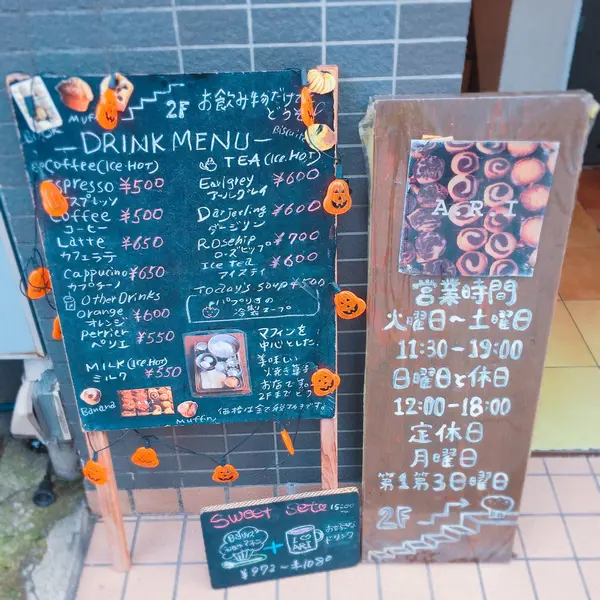 2F お飲み物だけでも
どうぞ
Muffin
Biscuit
DRINK MENU
Coffee (ICE・HOT)
Espresso ¥500
エスプレッソ
Coffee ¥500
コーヒー
Latte ¥650
カフェラテ
Cappucino ¥650
カプチーノ
Other Drinks
Orange ¥600
オレンジ
Perrier ¥550
ペリエ
MILK (ICE・HOT)
ミルク ¥550
Banana
TEA (ICE・HOT)
Earlgrey ¥600
アールグレイ
Darjeeling ¥600
ダージリン
Rosehip ¥700
ローズヒップ
ICE TEA ¥600
アイスティ
Today's soup ¥500
冷製スープ
マフィンを
中心とした
美味しい
焼き菓子
お店です。
2Fまでどうぞ
Muffin
A・R・I
営業時間
火曜日〜土曜日
11:30-19:00
日曜日と休日
12:00-18:00
定休日
月曜日
第1第3日曜日
2F
Sweet Set
15:00
I ♡ ARI
ドリンク
¥972〜¥1080